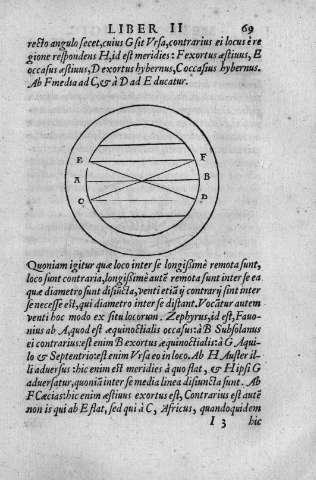 LIBER II 69
recto angulo secet, cuius G sit Vrsa, contrarius ei locus è re
gione respondens H, id est meridies: F exortus æstiuus, E
occasus æstiuus, D exortus hybernus, C occasus hybernus.
Ab F media ad C, & à D ad E ducatur.
E F
A B
C D
Quoniam igitur quæ loco inter se longissimè remota sunt,
loco sunt contraria, longissimè autē remota sunt inter se ea
quæ diametro sunt disiūcta, venti etiā ij contrarij sint inter
se necesse est, qui diametro inter se distant. Vocātur autem
venti hoc modo ex situ locorum. Zephyrus, id est, Fauo-
nius ab A, quod est æquinoctialis occasus: à B Subsolanus
ei contrarius: est enim B exortus æquinoctialis: à G Aqui-
lo & Septentrio: est enim Vrsa eo in loco. Ab H Auster il-
li aduersus: hic enim est meridies à quo flat, & H ipsi G
aduersatur, quoniā inter se media linea disiuncta sunt. Ab
F Cæcias: hic enim æstiuus exortus est, Contrarius est autē
non is qui ab E flat, sed qui à C, Africus, quandoquidem
I 3 hic